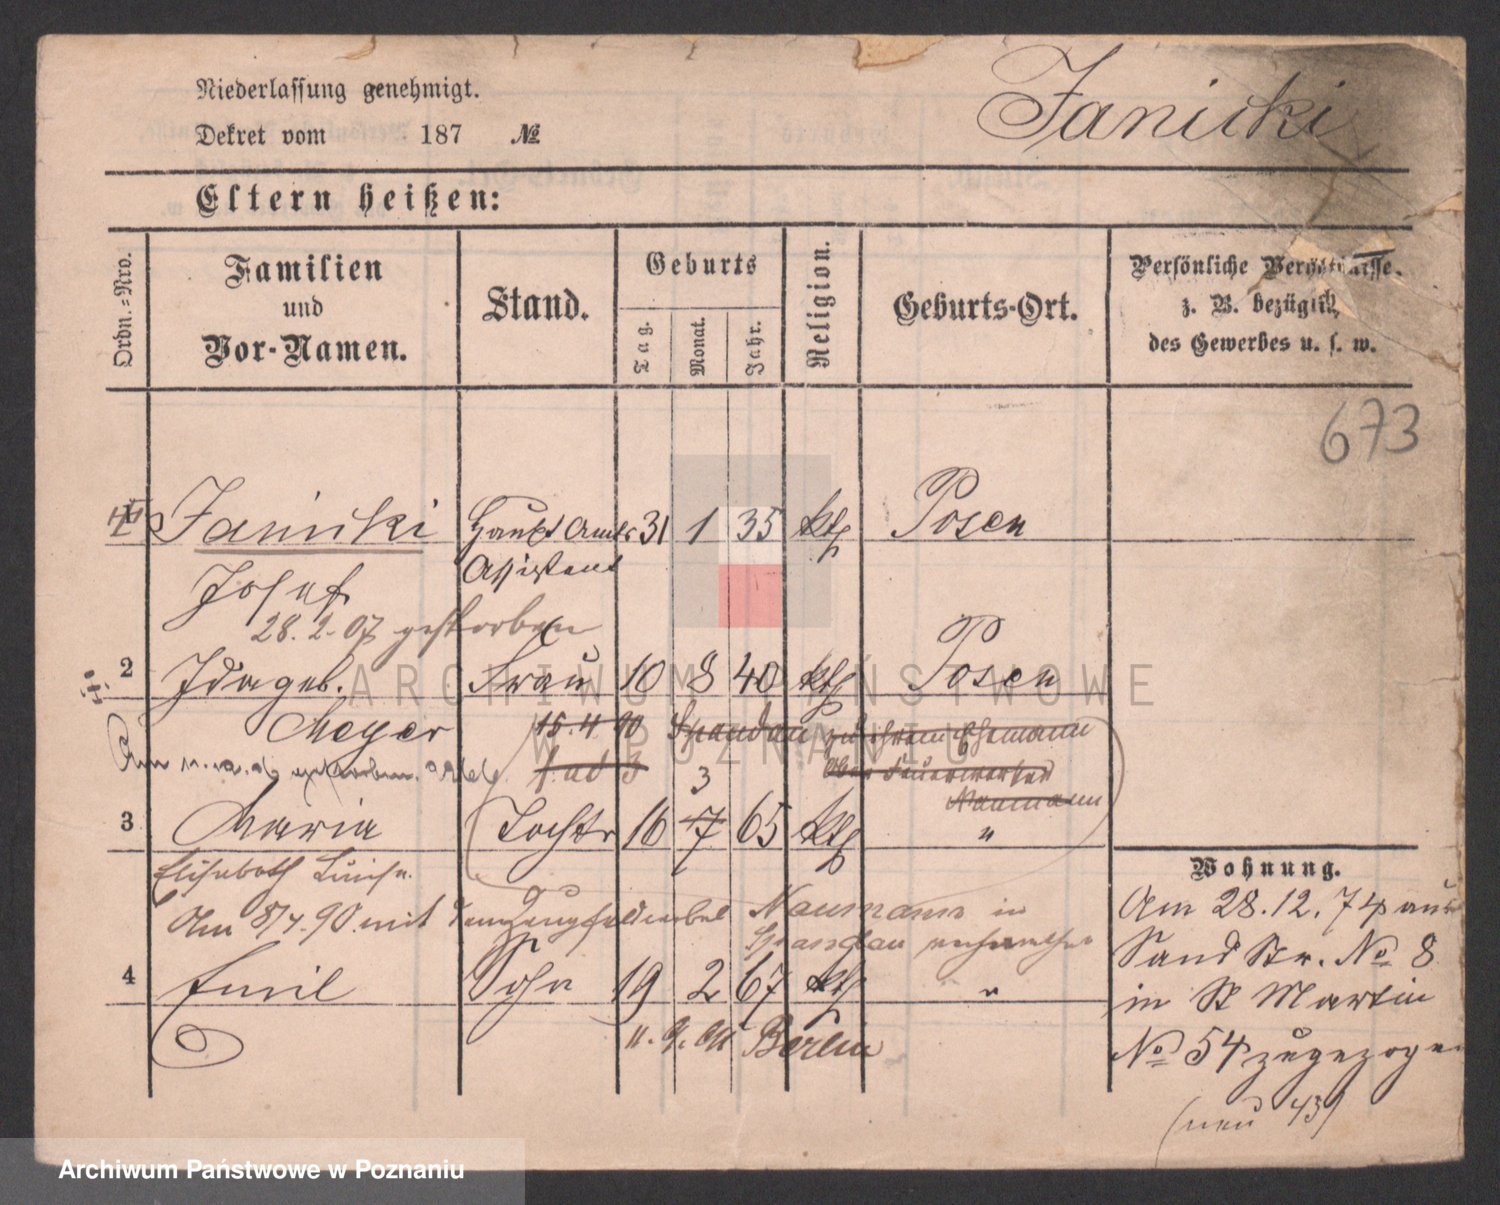 Niederlassung genehmigt.
Dekret vom 187 №
Janicki
Eltern heißen:
Ordn.-Nro.
Familien
und
Vor-Namen.
Stand.
Geburts
Tag.
Monat.
Jahr.
Religion.
Geburts-Ort.
Persönliche Verhältnisse.
z. B. bezüglich
des Gewerbes u. s. w.
673
1 Janicki Haupt Amts 31 1 35 kth Posen
Assistent
Josef
28.2.07 gestorben
2 Ida geb. Frau 10 8 40 kth Posen
Meyer 15.4.90 Spandau zu ihrem Ehemann
Am gestorben
Naumann
3
3 Maria Tochter 16 7 65 kth "
Elisabeth Luise.
Am 8/4.90 mit dem Zeugfeldwebel Naumann in
Spandau
4 Emil Sohn 19 2 67 kth "
11. 9. Berlin
Wohnung.
Am 28.12.74 aus
Sand Str. No 8
in St Martin
No 54 zugezogen
(neu 43)
ARCHIWUM PAŃSTWOWE
W POZNANIU
Archiwum Państwowe w Poznaniu